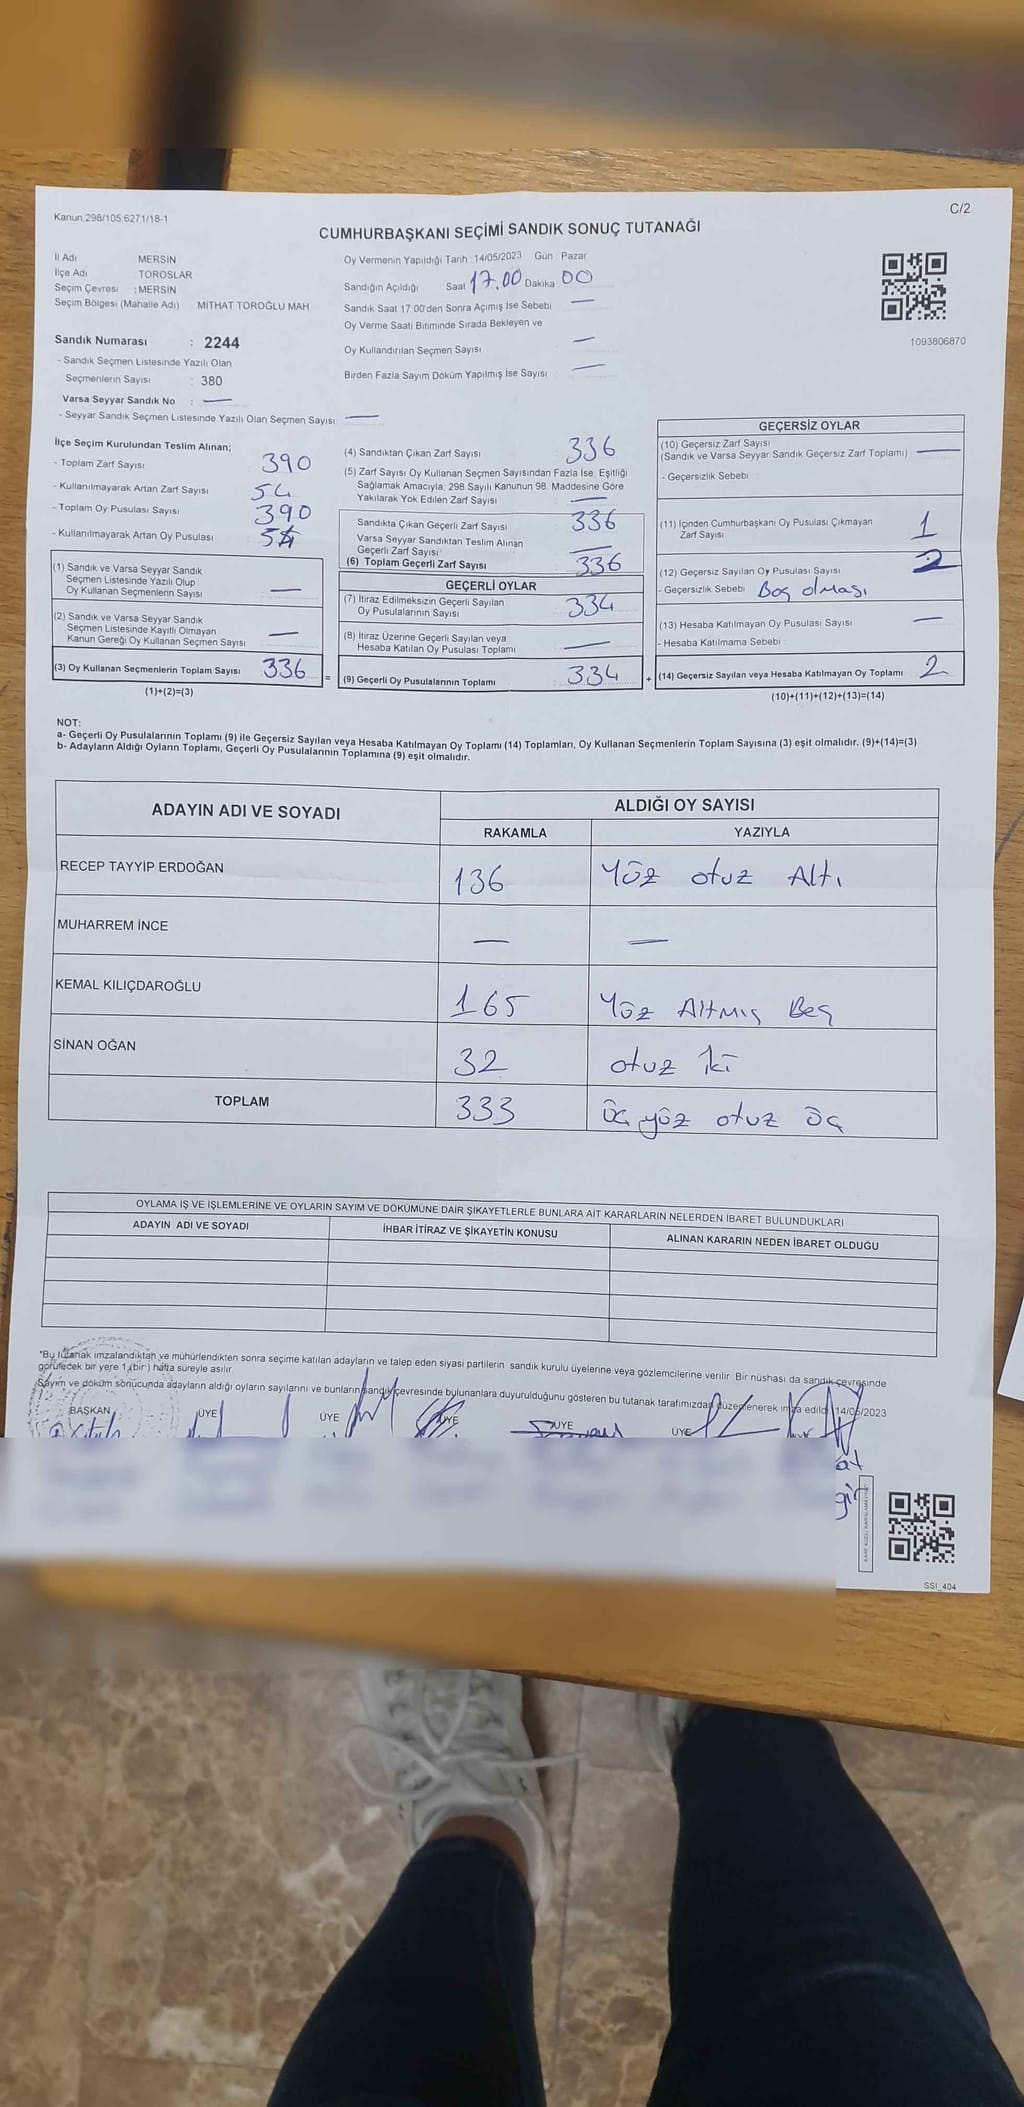 Kanun;298/105,6271/18-1
C/2
CUMHURBAŞKANI SEÇİMİ SANDIK SONUÇ TUTANAĞI
İl Adı MERSİN
İlçe Adı TOROSLAR
Seçim Çevresi : MERSİN
Seçim Bölgesi (Mahalle Adı) MİTHAT TOROĞLU MAH
Sandık Numarası : 2244
- Sandık Seçmen Listesinde Yazılı Olan
Seçmenlerin Sayısı : 380
Varsa Seyyar Sandık No : —
- Seyyar Sandık Seçmen Listesinde Yazılı Olan Seçmen Sayısı —
Oy Vermenin Yapıldığı Tarih :14/05/2023 Gün : Pazar
Sandığın Açıldığı Saat 17.00 Dakika 00
Sandık Saat 17:00'den Sonra Açımış İse Sebebi : —
Oy Verme Saati Bitiminde Sırada Bekleyen ve
Oy Kullandırılan Seçmen Sayısı : —
Birden Fazla Sayım Döküm Yapılmış İse Sayısı : —
1093806870
İlçe Seçim Kurulundan Teslim Alınan;
- Toplam Zarf Sayısı 390
- Kullanılmayarak Artan Zarf Sayısı 54
- Toplam Oy Pusulası Sayısı 390
- Kullanılmayarak Artan Oy Pusulası 54
(1) Sandık ve Varsa Seyyar Sandık
Seçmen Listesinde Yazılı Olup
Oy Kullanan Seçmenlerin Sayısı —
(2) Sandık ve Varsa Seyyar Sandık
Seçmen Listesinde Kayıtlı Olmayan
Kanun Gereği Oy Kullanan Seçmen Sayısı —
(3) Oy Kullanan Seçmenlerin Toplam Sayısı 336
(1)+(2)=(3)
=
(4) Sandıktan Çıkan Zarf Sayısı 336
(5) Zarf Sayısı Oy Kullanan Seçmen Sayısından Fazla İse, Eşitliği
Sağlamak Amacıyla; 298 Sayılı Kanunun 98. Maddesine Göre
Yakılarak Yok Edilen Zarf Sayısı —
Sandıkta Çıkan Geçerli Zarf Sayısı 336
Varsa Seyyar Sandıktan Teslim Alınan
Geçerli Zarf Sayısı —
(6) Toplam Geçerli Zarf Sayısı 336
GEÇERLİ OYLAR
(7) İtiraz Edilmeksizin Geçerli Sayılan
Oy Pusulalarının Sayısı 334
(8) İtiraz Üzerine Geçerli Sayılan veya
Hesaba Katılan Oy Pusulası Toplamı —
(9) Geçerli Oy Pusulalarının Toplamı 334
+
GEÇERSİZ OYLAR
(10) Geçersiz Zarf Sayısı
(Sandık ve Varsa Seyyar Sandık Geçersiz Zarf Toplamı) —
- Geçersizlik Sebebi :
(11) İçinden Cumhurbaşkanı Oy Pusulası Çıkmayan
Zarf Sayısı 1
(12) Geçersiz Sayılan Oy Pusulası Sayısı 2
- Geçersizlik Sebebi Boş olması
(13) Hesaba Katılmayan Oy Pusulası Sayısı —
- Hesaba Katılmama Sebebi :
(14) Geçersiz Sayılan veya Hesaba Katılmayan Oy Toplamı 2
(10)+(11)+(12)+(13)=(14)
NOT:
a- Geçerli Oy Pusulalarının Toplamı (9) ile Geçersiz Sayılan veya Hesaba Katılmayan Oy Toplamı (14) Toplamları, Oy Kullanan Seçmenlerin Toplam Sayısına (3) eşit olmalıdır. (9)+(14)=(3)
b- Adayların Aldığı Oyların Toplamı, Geçerli Oy Pusulalarının Toplamına (9) eşit olmalıdır.
ADAYIN ADI VE SOYADI ALDIĞI OY SAYISI
RAKAMLA YAZIYLA
RECEP TAYYİP ERDOĞAN 136 Yüz otuz Altı
MUHARREM İNCE — —
KEMAL KILIÇDAROĞLU 165 Yüz Altmış Beş
SİNAN OĞAN 32 otuz iki
TOPLAM 333 Üç yüz otuz üç
OYLAMA İŞ VE İŞLEMLERİNE VE OYLARIN SAYIM VE DÖKÜMÜNE DAİR ŞİKAYETLERLE BUNLARA AİT KARARLARIN NELERDEN İBARET BULUNDUKLARI
ADAYIN ADI VE SOYADI İHBAR İTİRAZ VE ŞİKAYETİN KONUSU ALINAN KARARIN NEDEN İBARET OLDUĞU
*Bu tutanak imzalandıktan ve mühürlendikten sonra seçime katılan adayların ve talep eden siyasi partilerin sandık kurulu üyelerine veya gözlemcilerine verilir. Bir nüshası da sandık çevresinde
görülecek bir yere 1 (bir) hafta süreyle asılır.
Sayım ve döküm sonucunda adayların aldığı oyların sayılarını ve bunların sandık çevresinde bulunanlara duyurulduğunu gösteren bu tutanak tarafımızdan düzenlenerek imza edildi. 14/05/2023
BAŞKAN ÜYE ÜYE ÜYE ÜYE ÜYE
SSI_404